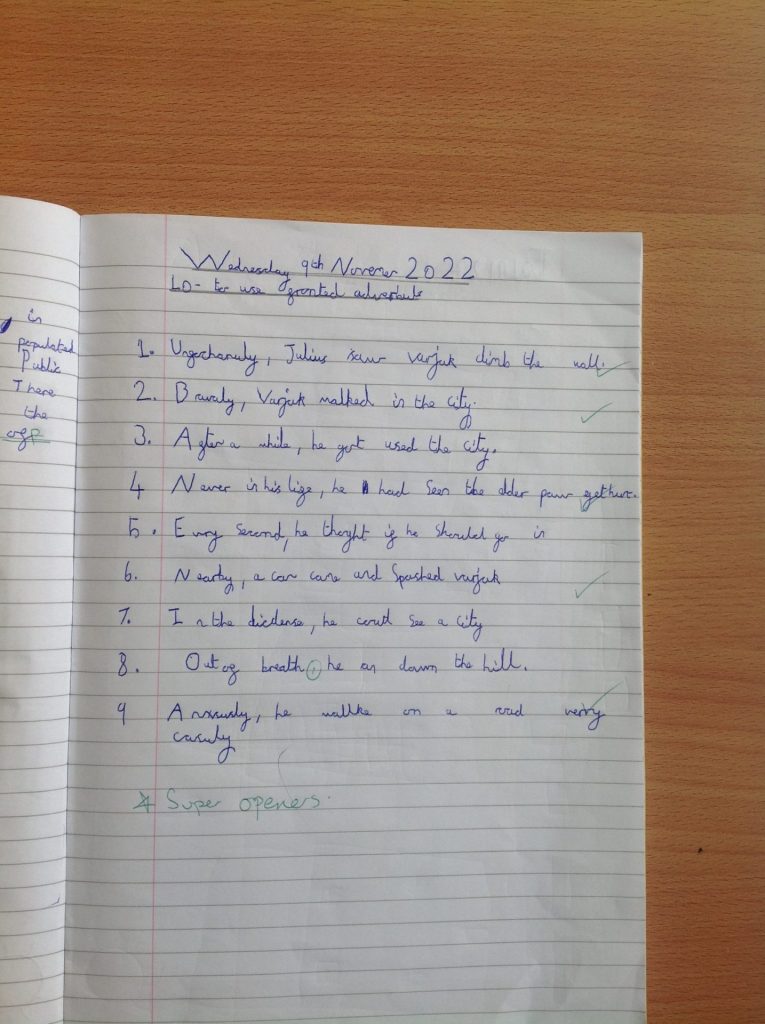 in
populated
Public
There
the
ogp
Wednesday 9th Novemer 2022
LO- to use gronted adverbials
1. Ungorchanuly, Julius saw varjak climb the wall.
2. Bravaly, Varjak walked in the city.
3. Agter a while, he got used the city.
4 Never in his lige, he had seen the older paw
5. Evry second, he thought ig he should go in
6. Nearby, a car came and Spashed varjak
7. In the dictense, he could see a city
8. Out og breath, he ran down the hill.
9 Anxiously, he wallke on a road verry
casuly
* Super openers.